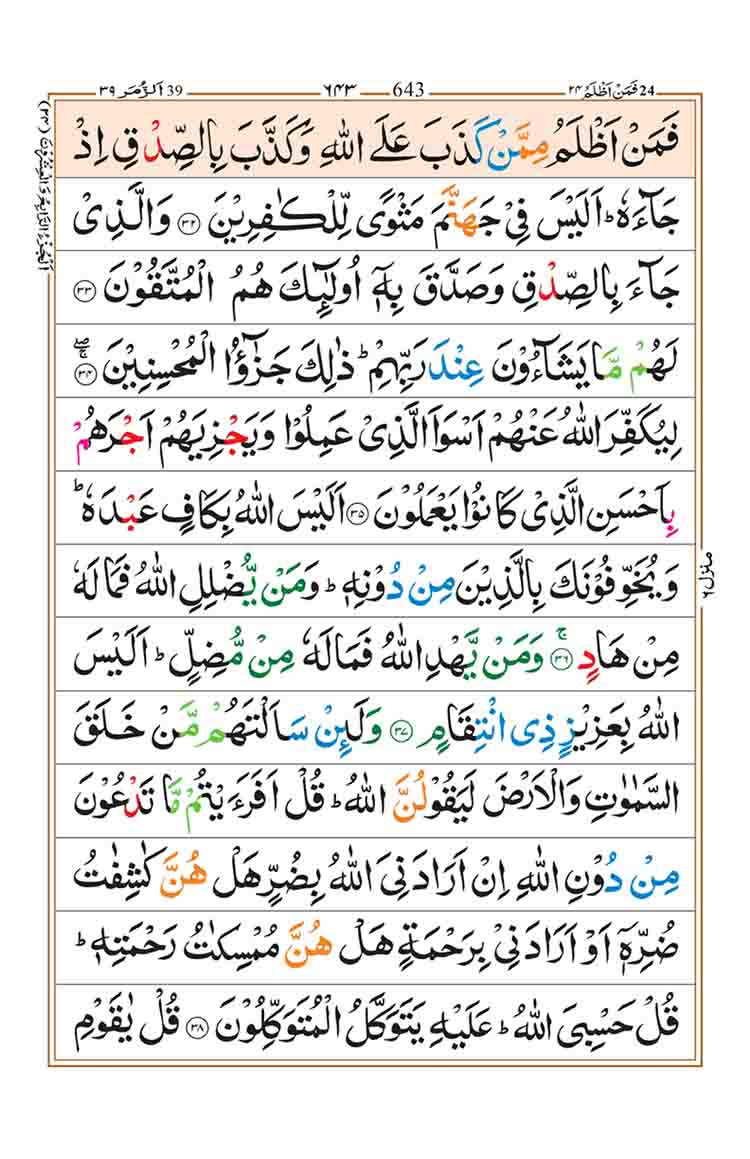 24 فَمَنۡ اَظۡلَمُ ۲۴ 643 ۶۴۳ 39 اَلزُّمَر ۳۹
فَمَنۡ اَظۡلَمُ مِمَّنۡ كَذَبَ عَلَى اللّٰهِ وَكَذَّبَ بِالصِّدۡقِ اِذۡ
جَآءَهٗ‌ؕ اَلَيۡسَ فِىۡ جَهَنَّمَ مَثۡوًى لِّلۡكٰفِرِيۡنَ ۳۲ وَالَّذِىۡ
جَآءَ بِالصِّدۡقِ وَصَدَّقَ بِهٖۤ‌ اُولٰٓٮِٕكَ هُمُ الۡمُتَّقُوۡنَ ۳۳
لَهُمۡ مَّا يَشَآءُوۡنَ عِنۡدَ رَبِّهِمۡ‌ؕ ذٰلِكَ جَزٰٓؤُا الۡمُحۡسِنِيۡنَ ۖۚ ۳۴
لِيُكَفِّرَ اللّٰهُ عَنۡهُمۡ اَسۡوَاَ الَّذِىۡ عَمِلُوۡا وَيَجۡزِيَهُمۡ اَجۡرَهُمۡ
بِاَحۡسَنِ الَّذِىۡ كَانُوۡا يَعۡمَلُوۡنَ ۳۵ اَلَيۡسَ اللّٰهُ بِكَافٍ عَبۡدَهٗ‌ ؕ
وَيُخَوِّفُوۡنَكَ بِالَّذِيۡنَ مِنۡ دُوۡنِهٖ‌ ؕ وَمَنۡ يُّضۡلِلِ اللّٰهُ فَمَا لَهٗ
مِنۡ هَادٍ‌ ۚ ۳۶ وَمَنۡ يَّهۡدِ اللّٰهُ فَمَا لَهٗ مِنۡ مُّضِلٍّ‌ ؕ اَلَيۡسَ
اللّٰهُ بِعَزِيۡزٍ ذِى انۡتِقَامٍ ۳۷ وَلَٮِٕنۡ سَاَلۡتَهُمۡ مَّنۡ خَلَقَ
السَّمٰوٰتِ وَالۡاَرۡضَ لَيَقُوۡلُنَّ اللّٰهُ‌ ؕ قُلۡ اَفَرَءَيۡتُمۡ مَّا تَدۡعُوۡنَ
مِنۡ دُوۡنِ اللّٰهِ اِنۡ اَرَادَنِىَ اللّٰهُ بِضُرٍّ هَلۡ هُنَّ كٰشِفٰتُ
ضُرِّهٖۤ اَوۡ اَرَادَنِىۡ بِرَحۡمَةٍ هَلۡ هُنَّ مُمۡسِكٰتُ رَحۡمَتِهٖ‌ ؕ
قُلۡ حَسۡبِىَ اللّٰهُ‌ ؕ عَلَيۡهِ يَتَوَكَّلُ الۡمُتَوَكِّلُوۡنَ ۳۸ قُلۡ يٰقَوۡمِ
منزل ۶
اَلۡجُزۡءُ الرَّابِعُ وَالۡعِشۡرُوۡنَ (۲۴)